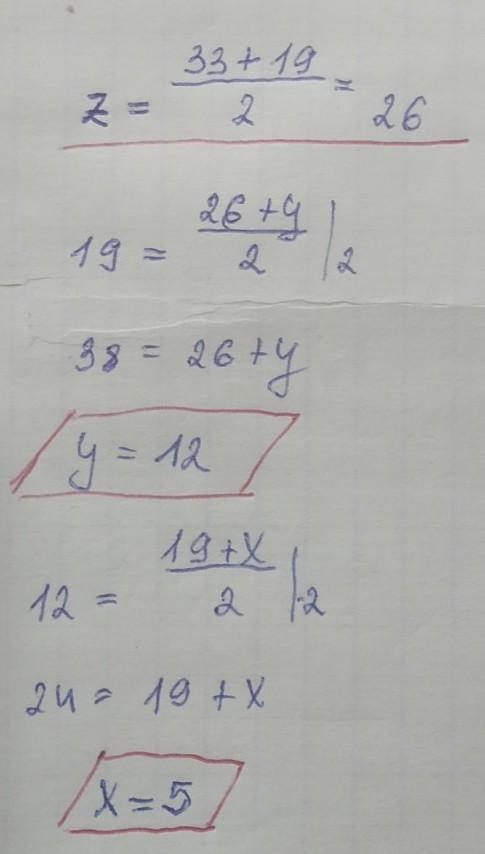 z = (33 + 19)/2 = 26
19 = (26 + y)/2 | 2
38 = 26 + y
y = 12
12 = (19 + x)/2 | ·2
24 = 19 + x
x = 5